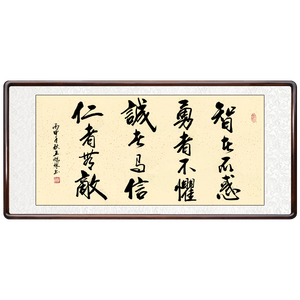 智者不惑
勇者不懼
誠者有信
仁者無敵